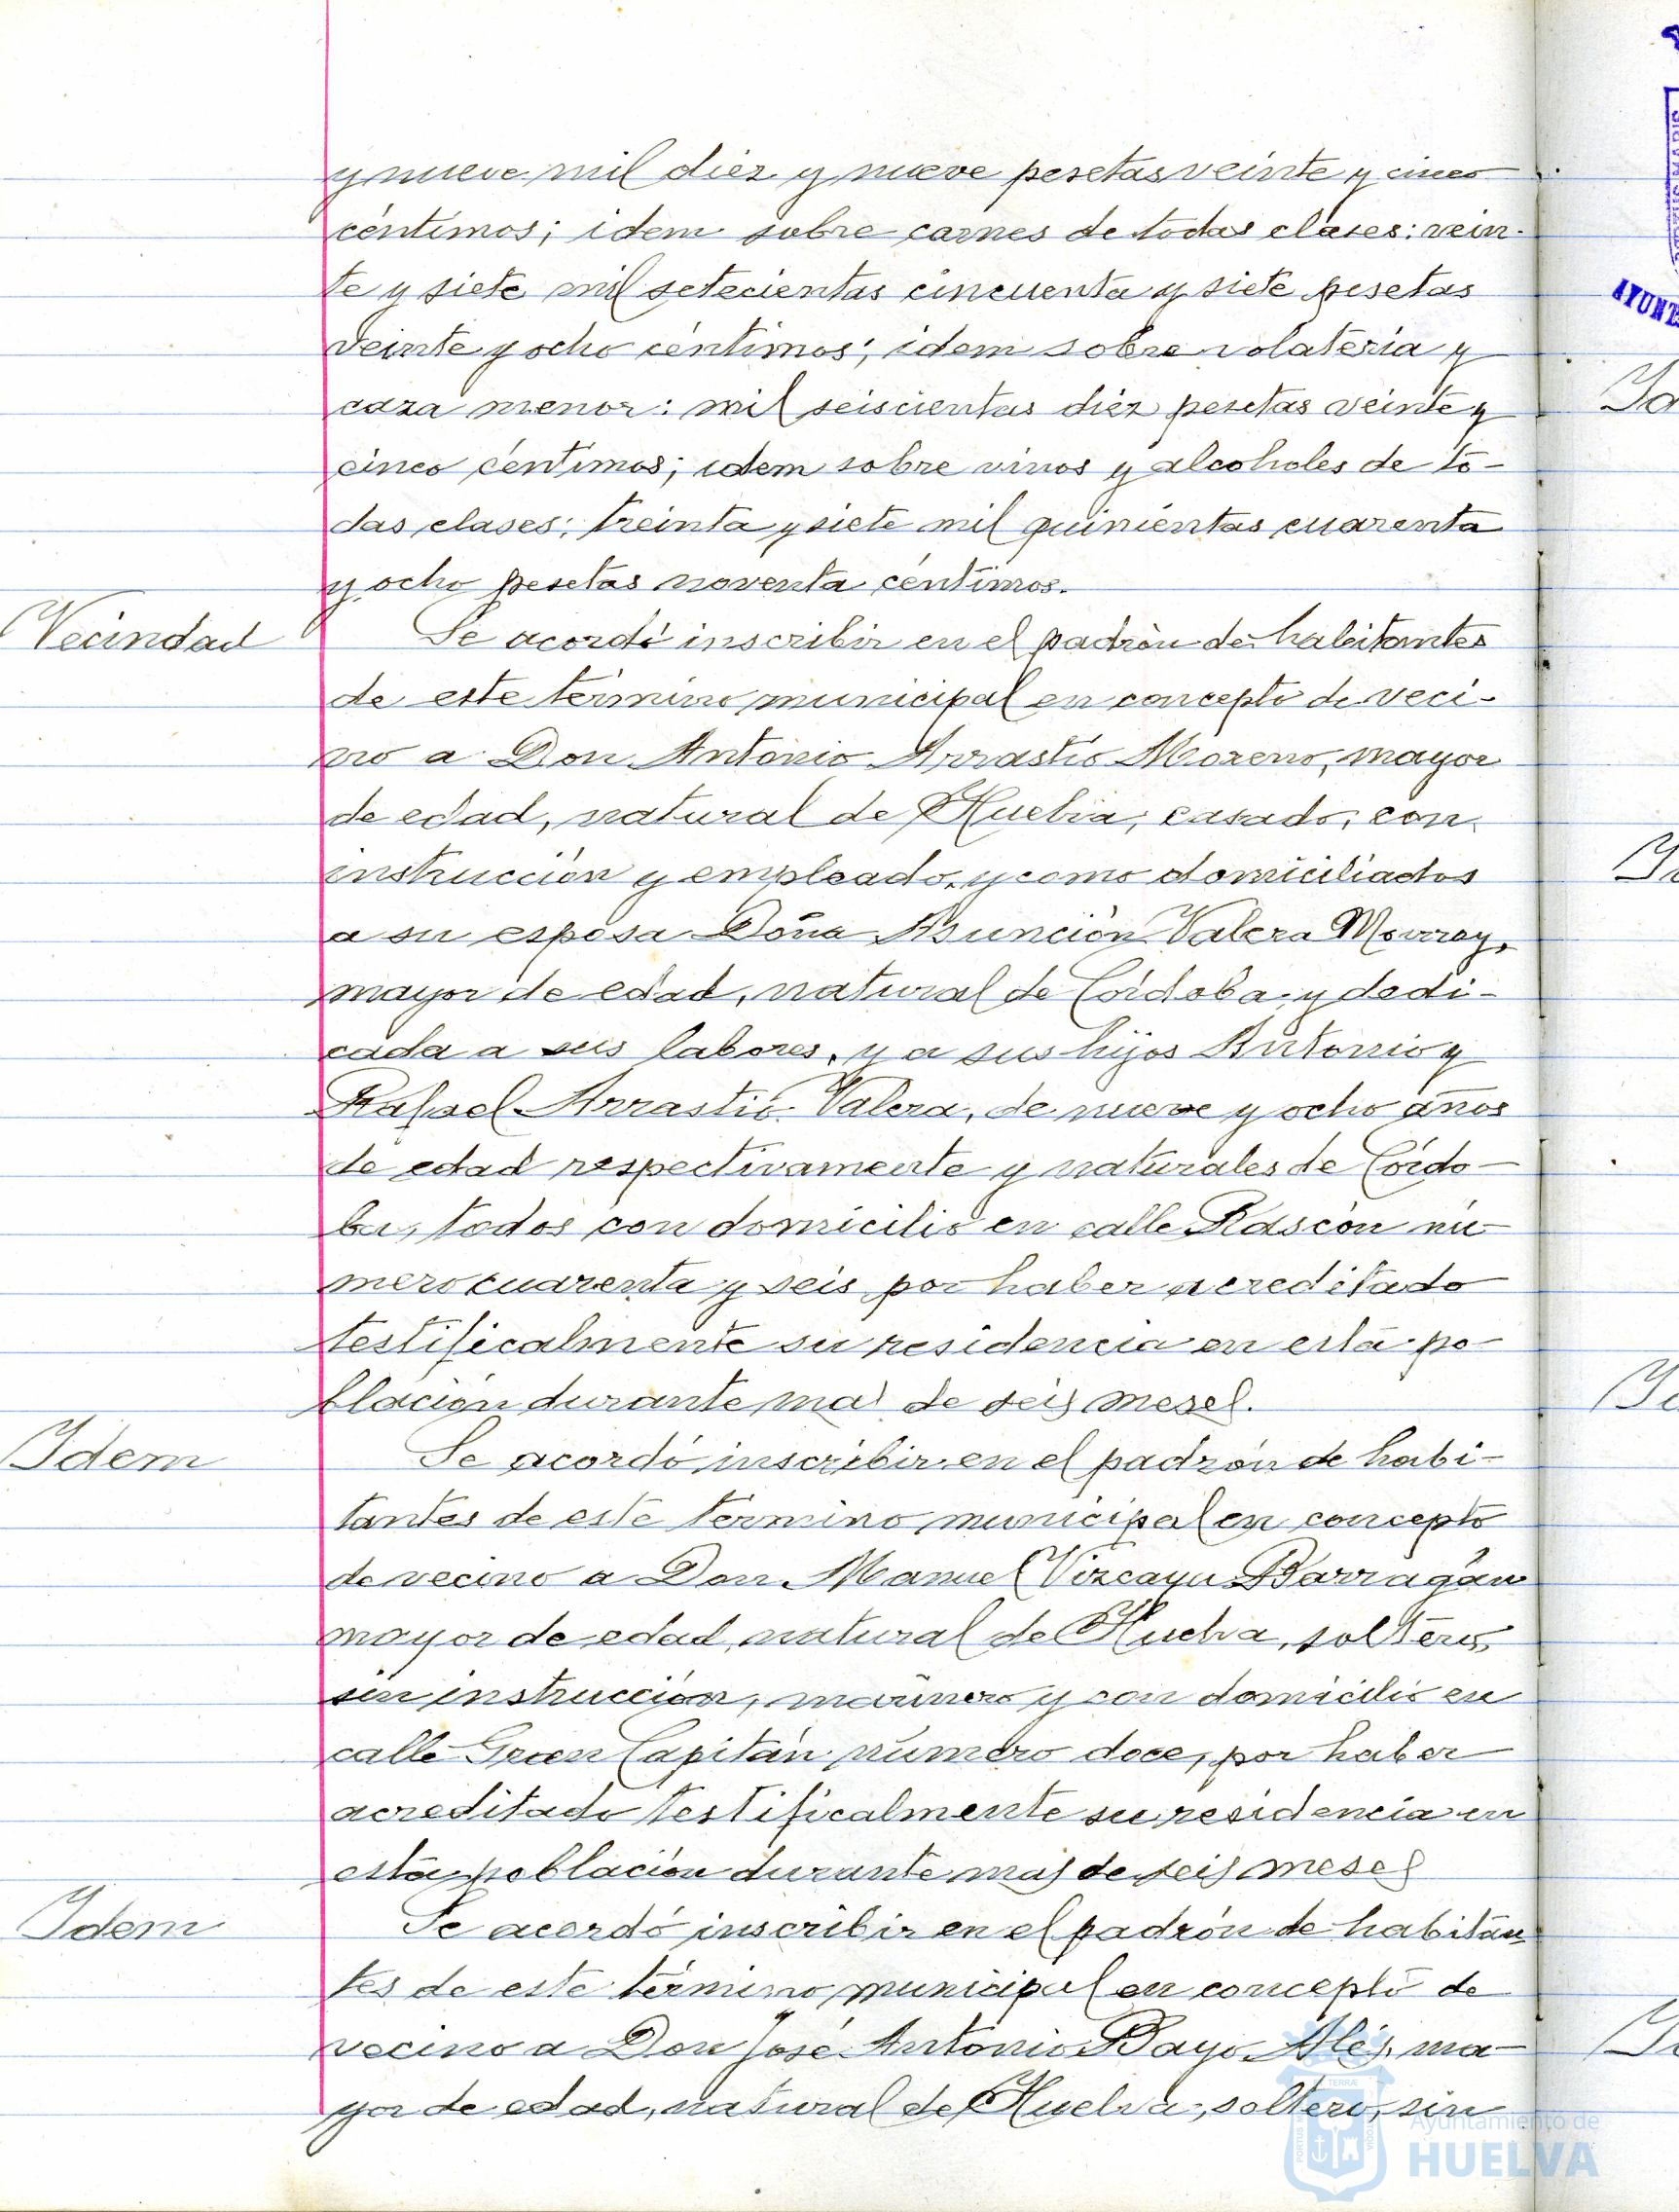 y nueve mil diez y nueve pesetas veinte y cinco
céntimos; idem sobre carnes de todas clases: vein-
te y siete mil setecientas cincuenta y siete pesetas
veinte y ocho céntimos; idem sobre volatería y
caza menor: mil seiscientas diez pesetas veinte y
cinco céntimos; idem sobre vinos y alcoholes de to-
das clases; treinta y siete mil quinientas cuarenta
y ocho pesetas noventa céntimos.
Vecindad
Se acordó inscribir en el padrón de habitantes
de este término municipal en concepto de veci-
no a Don Antonio Arrastio Moreno, mayor
de edad, natural de Huelva, casado, con
instrucción y empleado, y como domiciliados
a su esposa Doña Asunción Valera
mayor de edad, natural de Córdoba y dedi-
cada a sus labores, y a sus hijos Antonio y
Rafael Arrastio Valera, de nueve y ocho años
de edad respectivamente y naturales de Córdo-
ba, todos con domicilio en calle Rascón nú-
mero cuarenta y seis por haber acreditado
testificalmente su residencia en esta po-
blación durante mas de seis meses.
Idem
Se acordó inscribir en el padrón de habi-
tantes de este término municipal en concepto
de vecino a Don Manuel Vizcaya Barragán
mayor de edad, natural de Huelva, soltero,
sin instrucción, marinero y con domicilio en
calle Gran Capitán número doce, por haber
acreditado testificalmente su residencia en
esta población durante mas de seis meses
Idem
Se acordó inscribir en el padrón de habitan
tes de este término municipal en concepto de
vecino a Don José Antonio Bayo Alés, ma-
yor de edad, natural de Huelva, soltero, sin
Ayuntamiento de
HUELVA